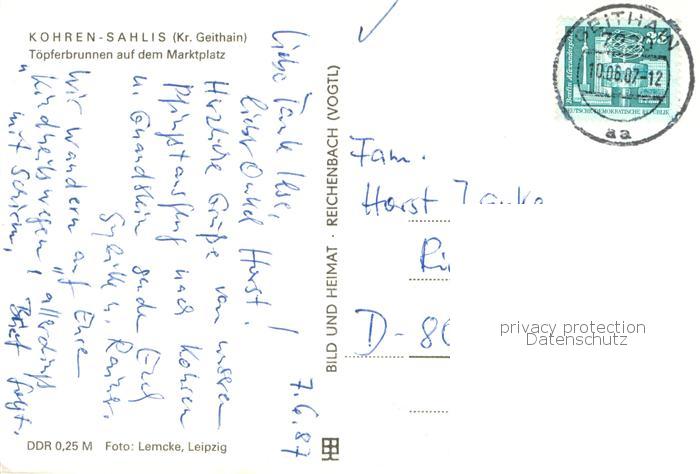 KOHREN-SAHLIS (Kr. Geithain)
Töpferbrunnen auf dem Marktplatz
7.6.87
Liebe Tante Ilse,
lieber Onkel Horst!
Herzliche Grüße von unserem
Pfingstausflug nach Kohren
u. Gnandstein senden Euch
Sybille u. Rainer.
Wir wandern auf Eure
"Kindheitswegen", allerdings
mit Schirm. Brief folgt.
DDR 0,25 M Foto: Lemcke, Leipzig
BILD UND HEIMAT · REICHENBACH (VOGTL)
GEITHAIN
10.06.87-12
aa
Berlin, Alexanderplatz
DEUTSCHE DEMOKRATISCHE REPUBLIK
Fam.
Horst
D-80
privacy protection
Datenschutz